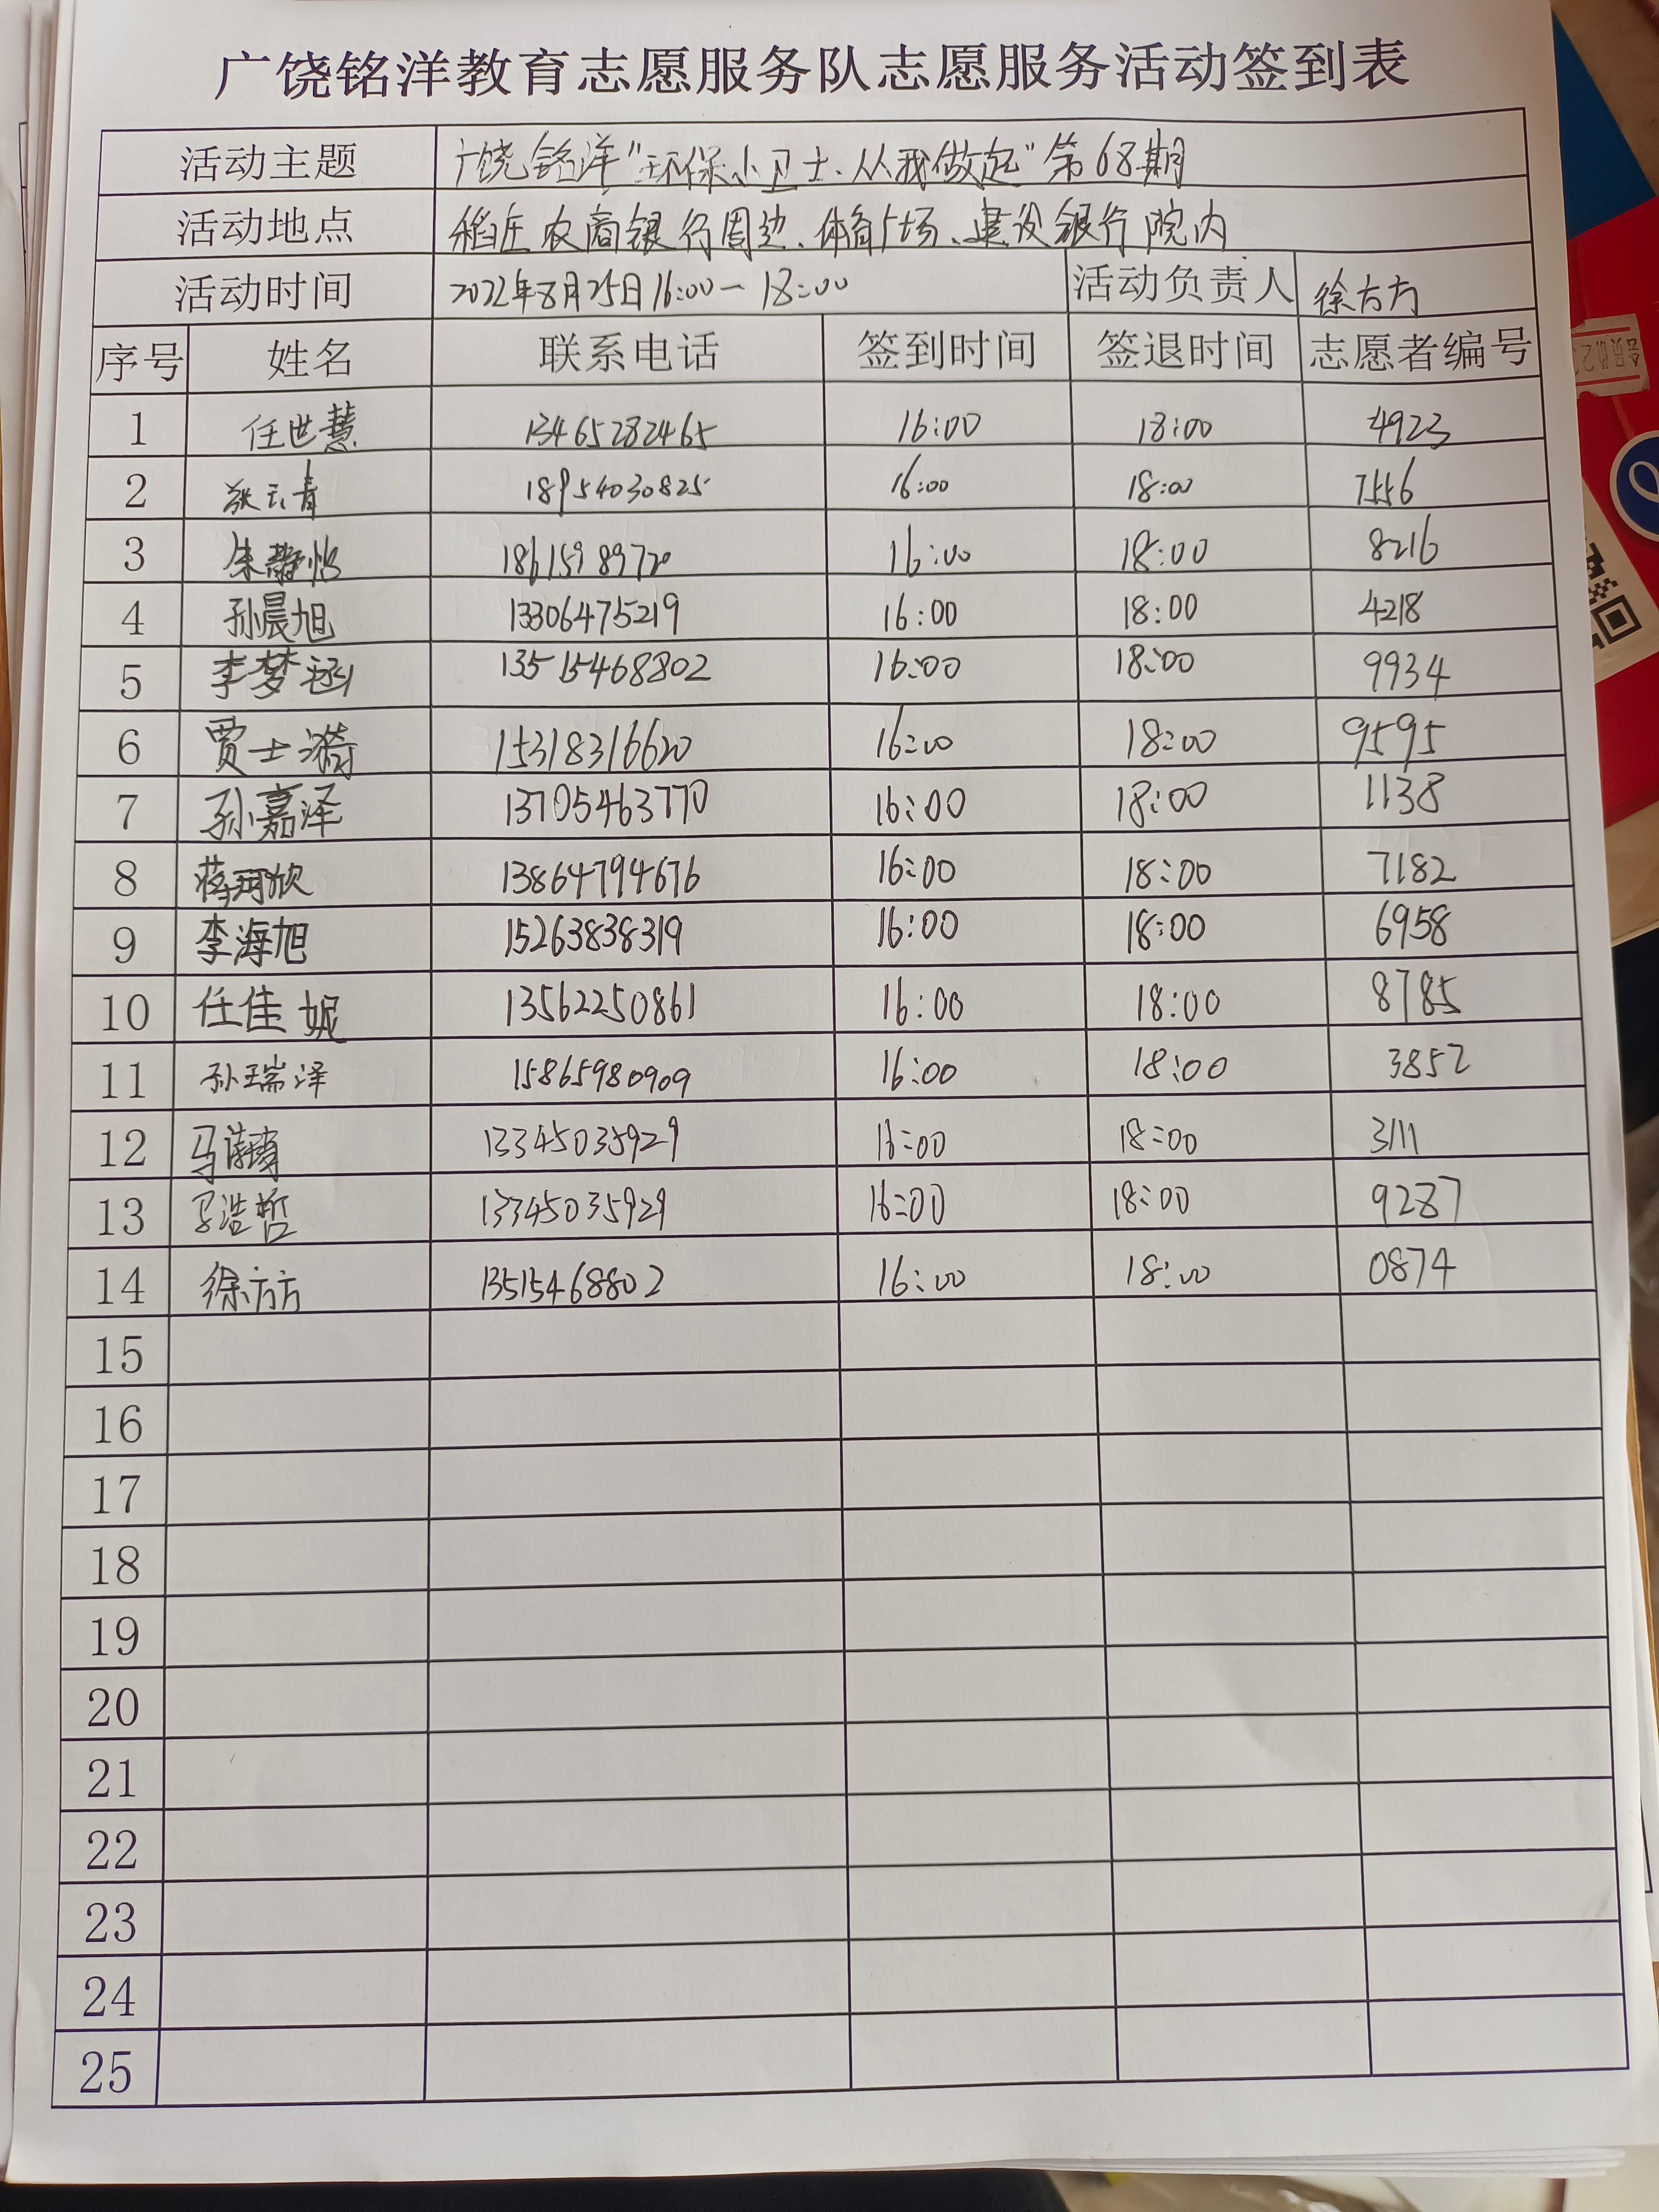 广饶铭洋教育志愿服务队志愿服务活动签到表
活动主题 广饶铭洋"环保小卫士、从我做起"第68期
活动地点 稻庄农商银行周边、体育广场、建设银行院内
活动时间 2022年8月25日16:00-18:00 活动负责人 徐方方
序号 姓名 联系电话 签到时间 签退时间 志愿者编号
1 任世慧 13465282465 16:00 18:00 4923
2 18954030825 16:00 18:00 7556
3 朱静怡 18615989720 16:00 18:00 8216
4 孙晨旭 13306475219 16:00 18:00 4218
5 李梦涵 13515468802 16:00 18:00 9934
6 贾士漪 15318316620 16:00 18:00 9595
7 孙嘉泽 13705463770 16:00 18:00 1138
8 蒋珂欣 13864794676 16:00 18:00 7182
9 李海旭 15263838319 16:00 18:00 6958
10 任佳妮 13562250861 16:00 18:00 8785
11 孙瑞泽 15865980909 16:00 18:00 3852
12 马 13345035929 16:00 18:00 3111
13 马浩哲 13345035929 16:00 18:00 9287
14 徐方方 13515468802 16:00 18:00 0874
15
16
17
18
19
20
21
22
23
24
25